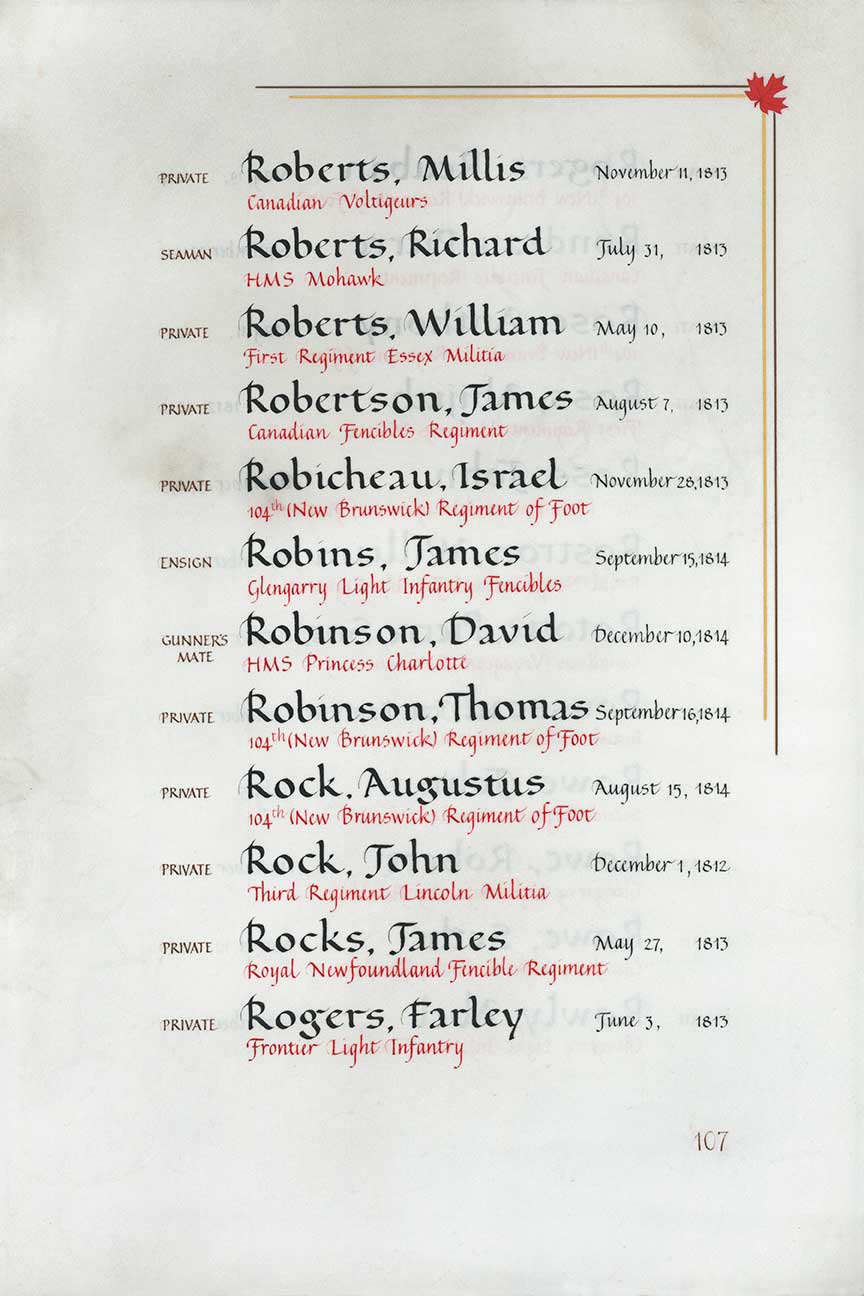 PRIVATE Roberts, Millis November 11, 1813
Canadian Voltigeurs
SEAMAN Roberts, Richard July 31, 1813
HMS Mohawk
PRIVATE Roberts, William May 10, 1813
First Regiment Essex Militia
PRIVATE Robertson, James August 7, 1813
Canadian Fencibles Regiment
PRIVATE Robicheau, Israel November 28, 1813
104th (New Brunswick) Regiment of Foot
ENSIGN Robins, James September 15, 1814
Glengarry Light Infantry Fencibles
GUNNER'S MATE Robinson, David December 10, 1814
HMS Princess Charlotte
PRIVATE Robinson, Thomas September 16, 1814
104th (New Brunswick) Regiment of Foot
PRIVATE Rock, Augustus August 15, 1814
104th (New Brunswick) Regiment of Foot
PRIVATE Rock, John December 1, 1812
Third Regiment Lincoln Militia
PRIVATE Rocks, James May 27, 1813
Royal Newfoundland Fencible Regiment
PRIVATE Rogers, Farley June 3, 1813
Frontier Light Infantry
107